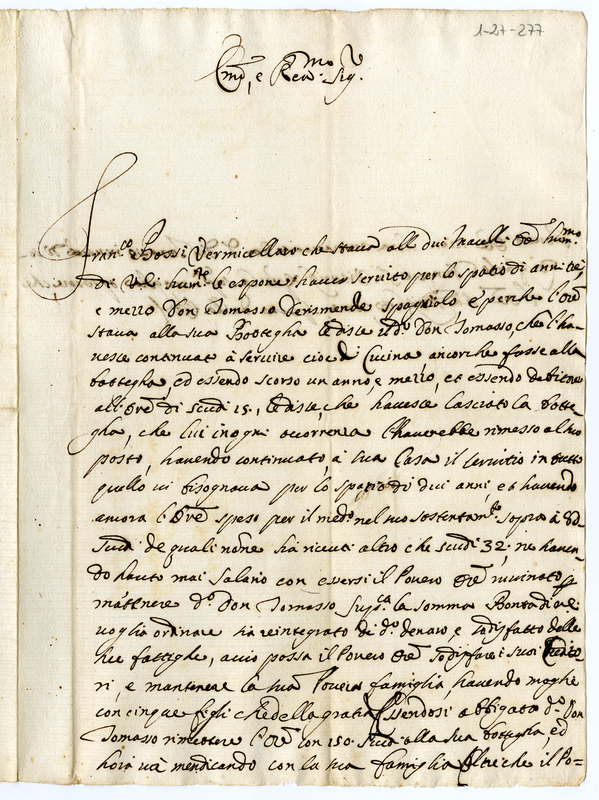 1-27-277
Ill.mo, e Rev.mo Sig.
Fran.co Bossi Vermicellaro che stava alli dui Macelli Ore hum.mo
di V.S. hum.te le espone haver servito per lo spatio di anni tre
e mezzo Don Tomasso Derismende spagniolo e perche l'Ore
stava alla sua Bottegha le disse il d.o Don Tomasso, che l'ha-
vesse continuato à servire cioe di Cucina ancorche fosse alla
bottegha, ed essendo scorso un anno, e mezzo, et essendo debitore
all'Ore di scudi 15, le disse, che havesse lasciato la botte-
gha, che lui in ogni occorrenza l'haverebbe rimesso al suo
posto, havendo continuato, à sua Casa il servitio in tutto
quello vi bisognava per lo spatio di dui anni, et havendo
ancora l'Ore speso per il med.o nel suo sostentam.to sopra à 80
scudi de quali non ha ricevuti altro che scudi 32, ne haven-
do hauto mai salario con eversi il Povero Ore ruvinato p
mantenere d.o Don Tomasso sup.ca la somma Bontà di V.S.
voglia ordinare sia reintegrato di d.o denaro e sodisfatto delle
sue fattighe, acciò possa il Povero Ore sodisfare i suoi Credito-
ri, e mantenere la sua Povera famiglia, havendo moglie
con cinque figli che della gratia Essendosi obbligato d.o Don
Tomasso rimettere l'Ore con 150 scudi alla sua bottegha, ed
hora và mendicando con la sua famiglia Oltre che il Po=